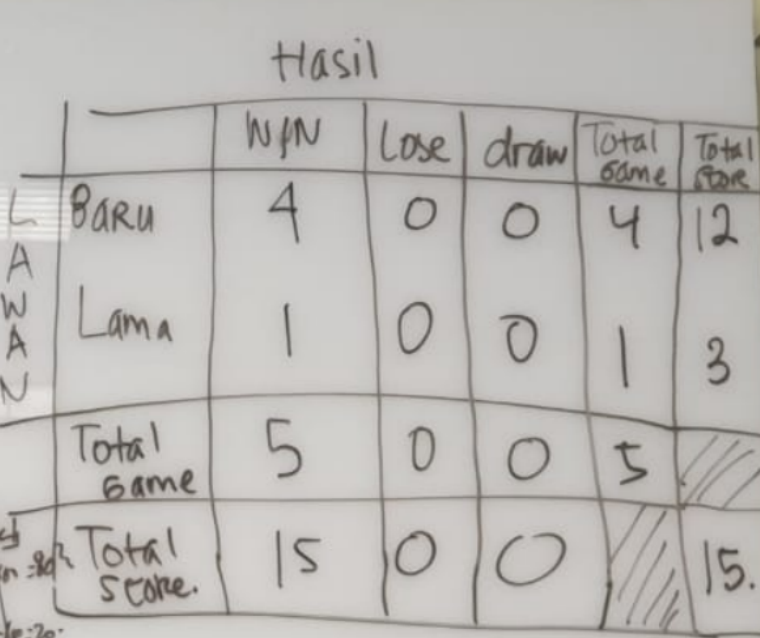 Hasil
WIN Lose draw Total Game Total Score
LAWAN
BARU 4 0 0 4 12
Lama 1 0 0 1 3
Total Game 5 0 0 5
Total Score. 15 0 0 15.